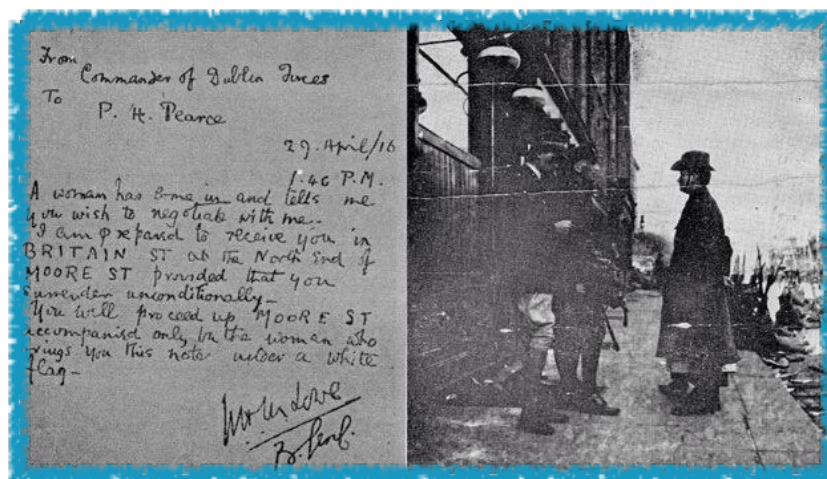 From
Commander of Dublin Forces
To
P. H. Pearce
29. April/16
1.40 P.M.
A woman has come in and tells me
you wish to negotiate with me.
I am prepared to receive you in
BRITAIN ST at the North End of
MOORE ST provided that you
surrender unconditionally_
You will proceed up MOORE ST
accompanied only by the woman who
brings you this note under a white
flag_
W M Lowe
B. Genl.